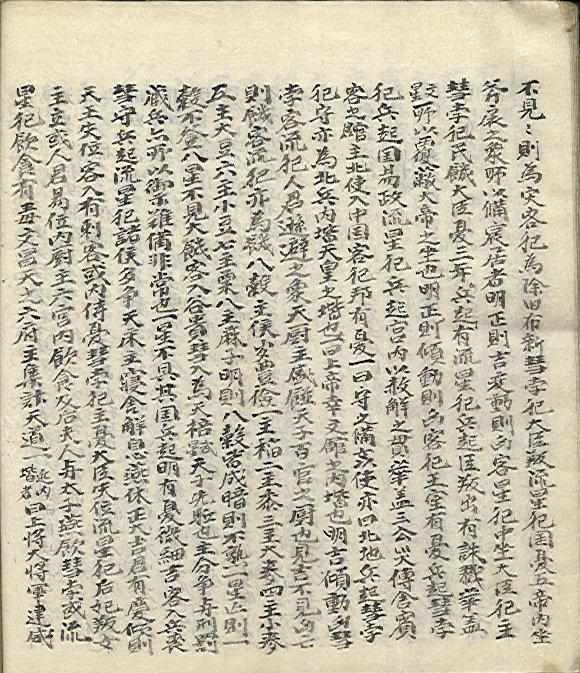 不見〻則為災客犯為除旧布新彗孛犯大臣叛流星犯国憂五帝内坐
斧扆之象所以備宸居者明正則吉変動則凶客星犯中坐大臣犯主
彗孛犯民饑大臣憂三年兵起有流星犯兵起臣叛出有誅戮華盖
星所以覆蔵大帝之坐也明正則傾動則凶客犯王室有憂兵起彗孛
犯兵起国易政流星犯兵起宮内以救解之貫華盖三公災傳舎賓
客之館主北使入中国客犯邦有憂一曰守之備姦使亦曰北地兵起彗孛
犯守亦為北兵内堦天皇之堦也一曰上帝幸文館之内堦也明吉傾動凶彗
孛客流犯人君遜避之象天厨主盛饌天子百官之厨也見吉不見凶亡
則饑客流犯亦為饑八穀主侯歳豊儉一主稲二主黍三主大麦四主小麦
五主大豆六主小豆七主粟八主麻子明則八穀皆成暗則不熟一星亡則一
穀不登八星不見大饑客入谷貴彗入為天棓天子先駈也主分争与刑罰
蔵兵亦所以禦難備非常也一星不具其国兵起明有憂微細吉客入兵喪
彗守兵起流星犯諸侯多争天床主寝舎解息燕休正大吉君有慶傾則
天王失位客入有刺客或内侍憂彗孛犯主憂大臣失位流星犯后妃叛女
主立或人君易位内厨主六宮内飲食及后夫人与太子燕飲彗孛或流
星犯飲食有毒文昌天之六府主集計天道一近内堦者曰上将大将軍建威